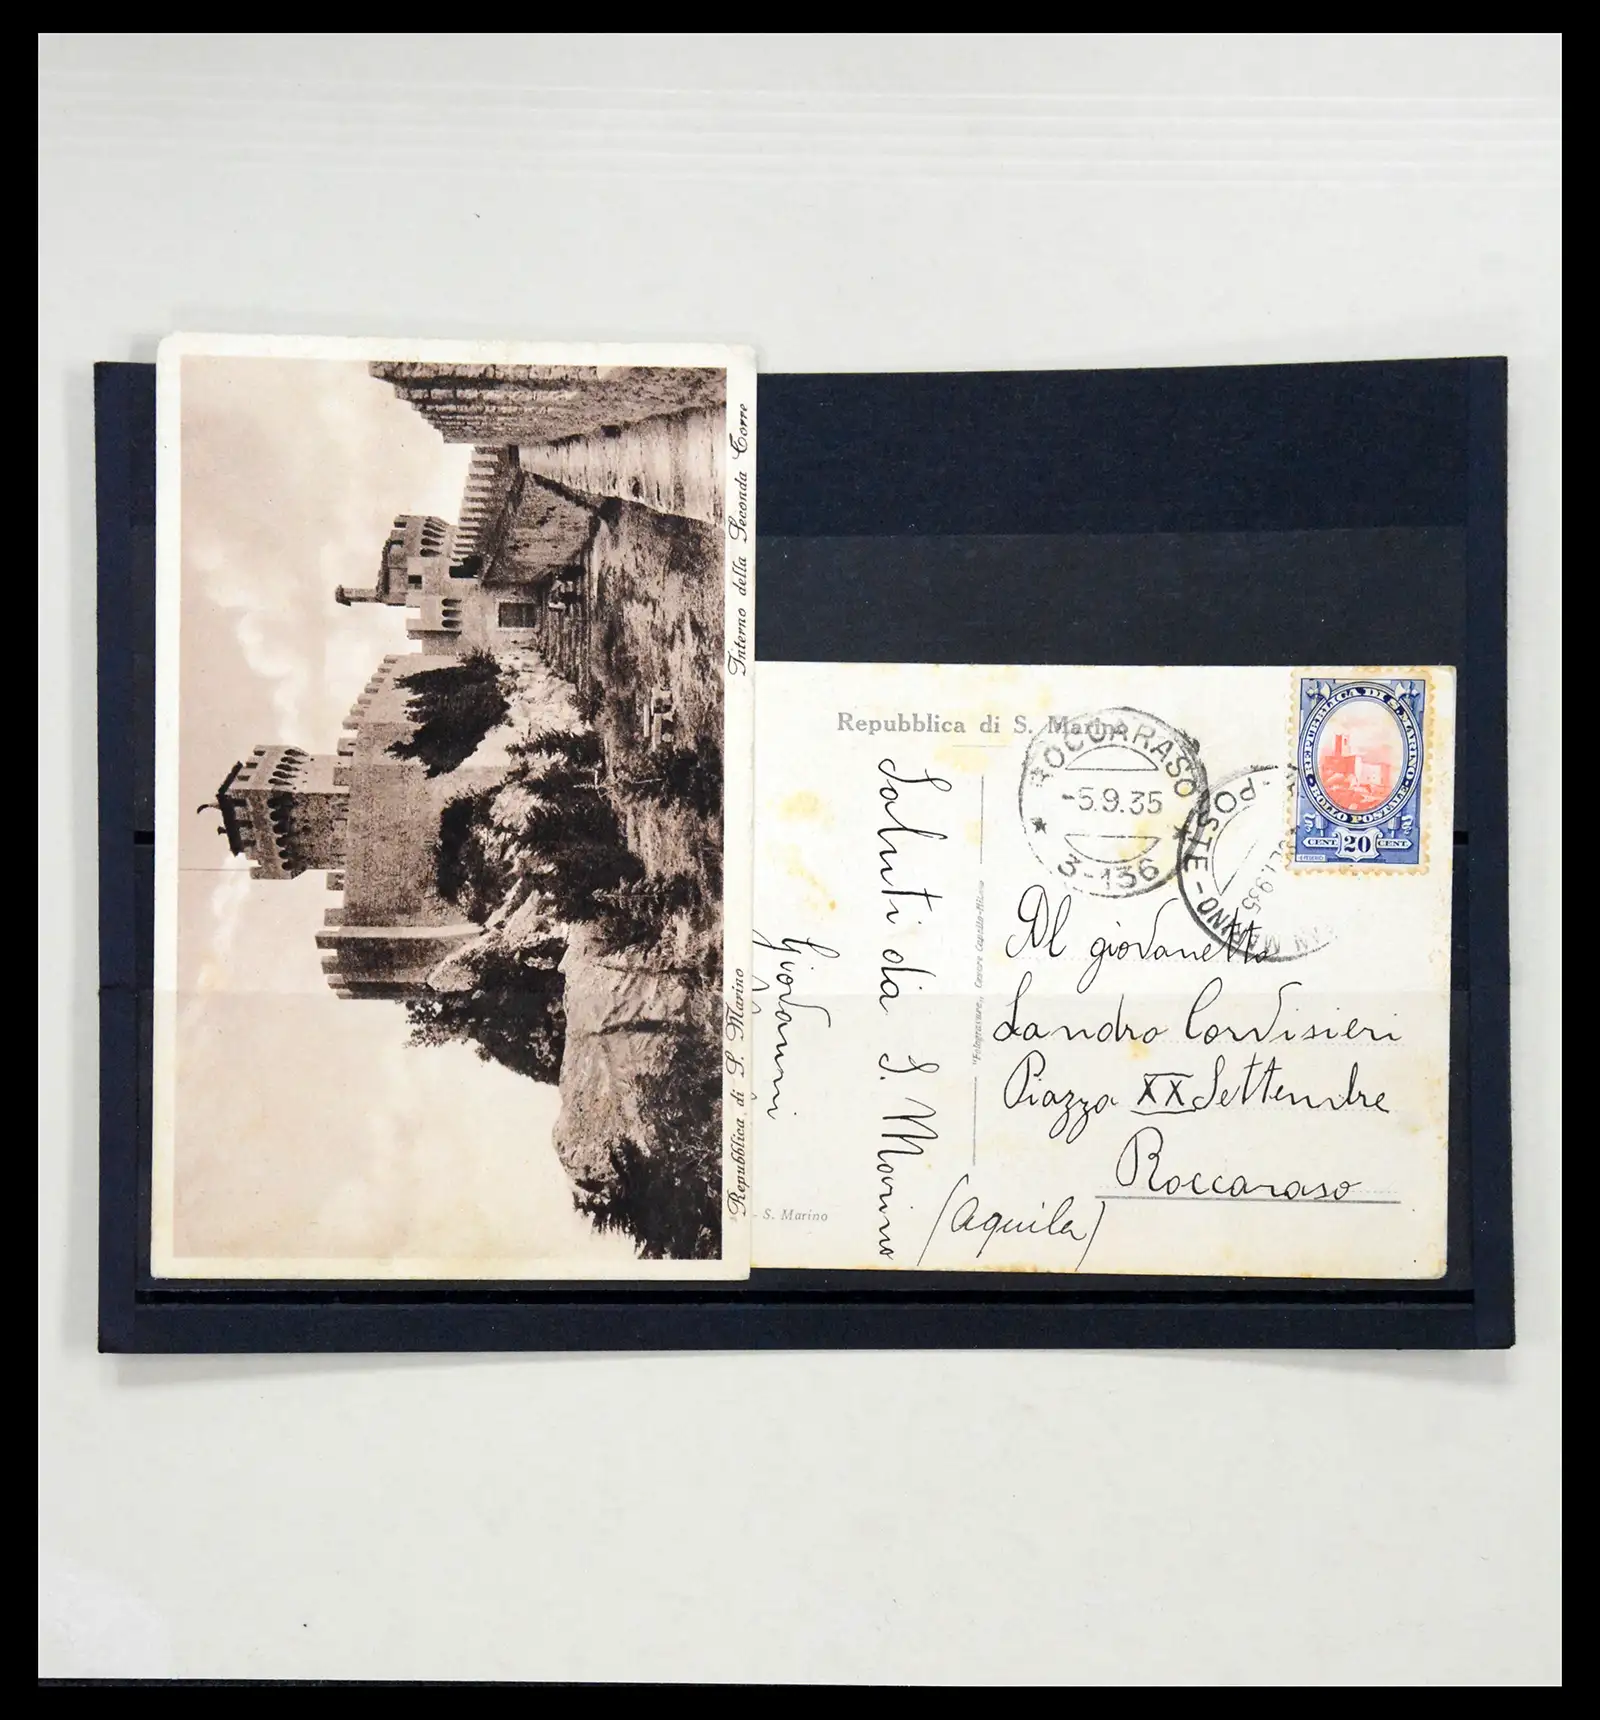 Interno della Seconda Torre
Repubblica di S. Marino
Repubblica di S. Marino
ROCCARASO
-5.9.35
3-136
POSTE -
REPUBBLICA DI S. MARINO
BOLLO POSTALE
CENT 20 CENT
Saluti da S. Marino
Giovanni
"Fotogravure" Cesare Capello-Milano
Al giovanetto
Sandro Corvisieri
Piazza XX Settembre
Roccaraso
(Aquila)
- S. Marino